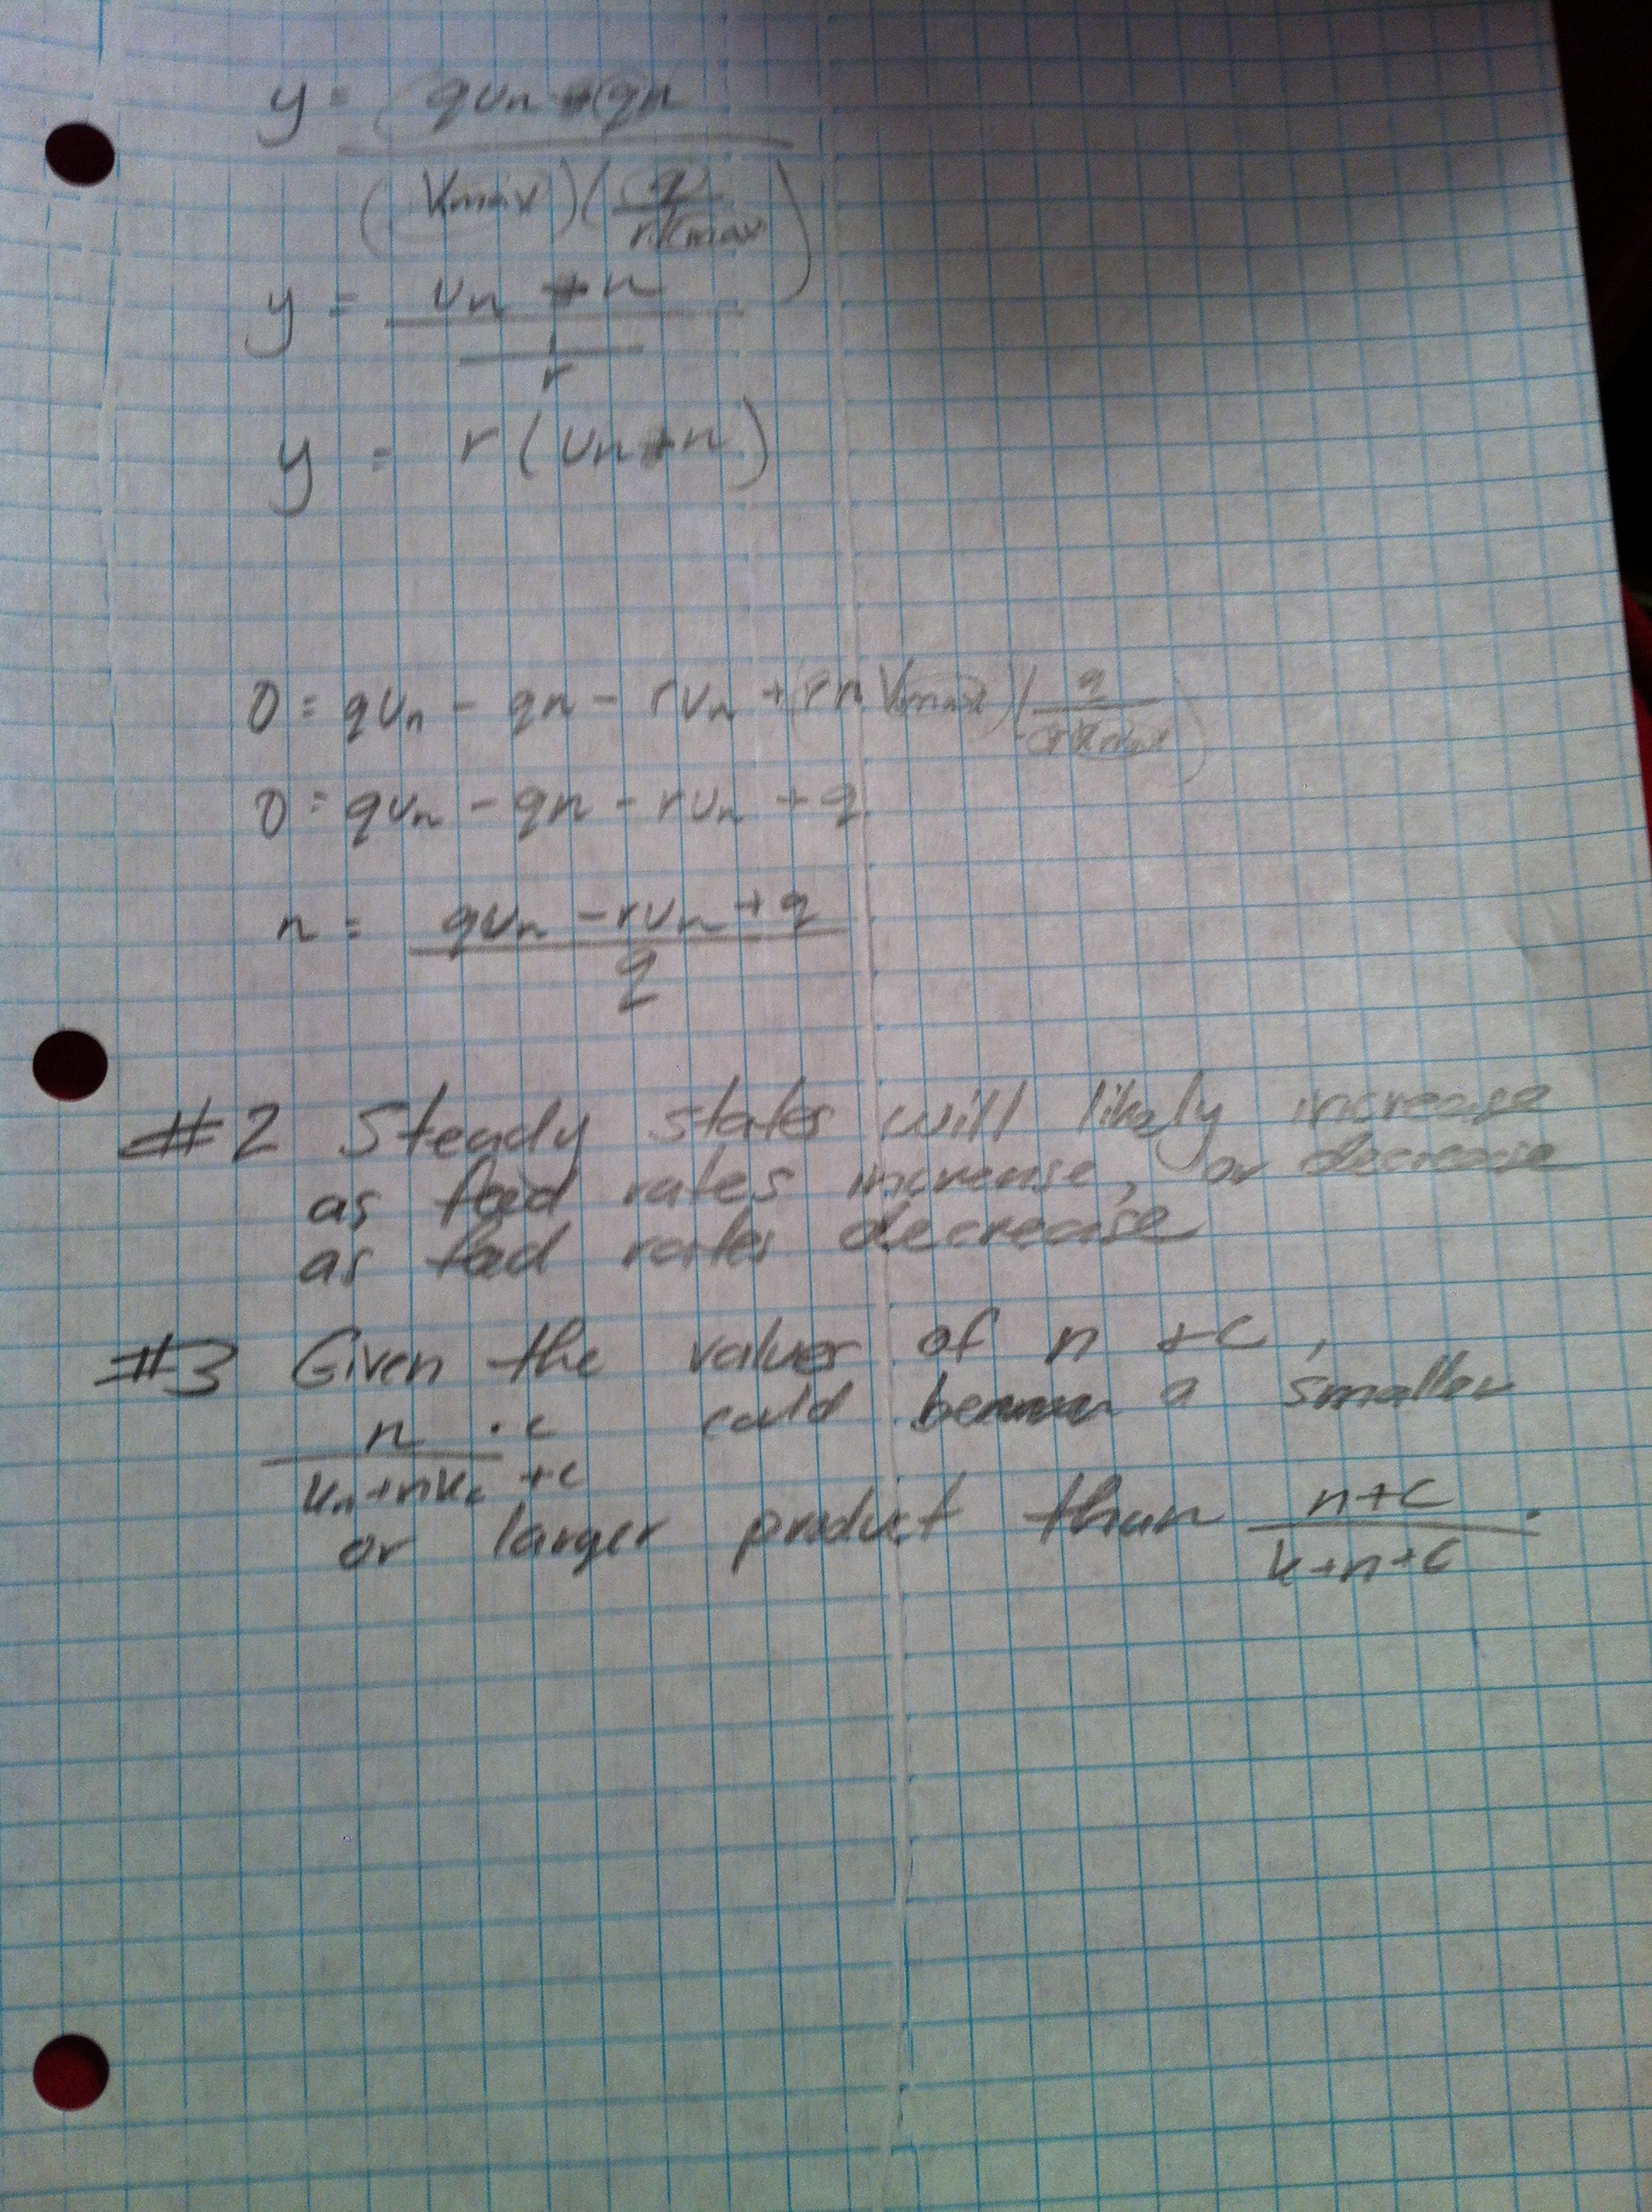 y = qvn + qn
(Vmax)(q / rVmax)
y = vn + n
1/r
y = r(vn + n)
0 = qvn - qn - rvn + (rn Vmax)(q
0 = qvn - qn - rvn + q
n = qvn - rvn + q
q
#2 Steady states will likely increase
as food rates increase, or decrease
as food rates decrease
#3 Given the values of n + c,
n · c could a smaller
kn+n kc +c
or larger product than n+c / k+n+c .